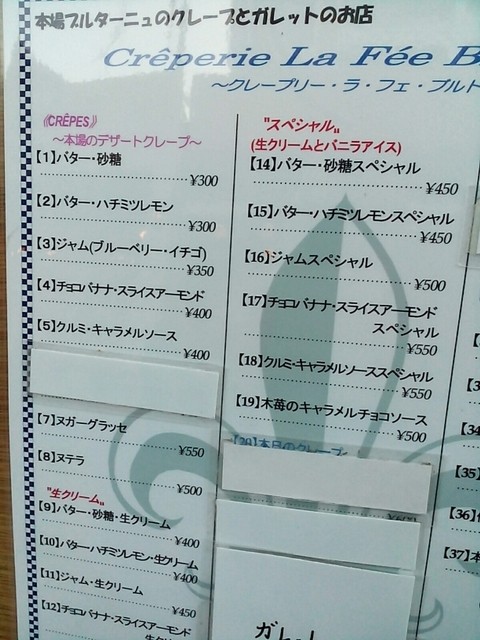 本場ブルターニュのクレープとガレットのお店
Crêperie La Fée B
～クレープリー・ラ・フェ・ブルト
《CRÊPES》
～本場のデザートクレープ～
【1】バター・砂糖
¥300
【2】バター・ハチミツレモン
¥300
【3】ジャム(ブルーベリー・イチゴ)
¥350
【4】チョコバナナ・スライスアーモンド
¥400
【5】クルミ・キャラメルソース
¥400
【7】ヌガーグラッセ
¥550
【8】ヌテラ
¥500
〝生クリーム〟
【9】バター・砂糖・生クリーム
¥400
【10】バターハチミツレモン・生クリーム
¥400
【11】ジャム・生クリーム
¥450
【12】チョコバナナ・スライスアーモンド
生クリ
〝スペシャル〟
(生クリームとバニラアイス)
【14】バター・砂糖スペシャル
¥450
【15】バター・ハチミツレモンスペシャル
¥450
【16】ジャムスペシャル
¥500
【17】チョコバナナ・スライスアーモンド
スペシャル
¥550
【18】クルミ・キャラメルソーススペシャル
¥550
【19】木苺のキャラメルチョコソース
¥500
【20】本日のクレープ
ガレット
【34
【35】
【36】
【37】本